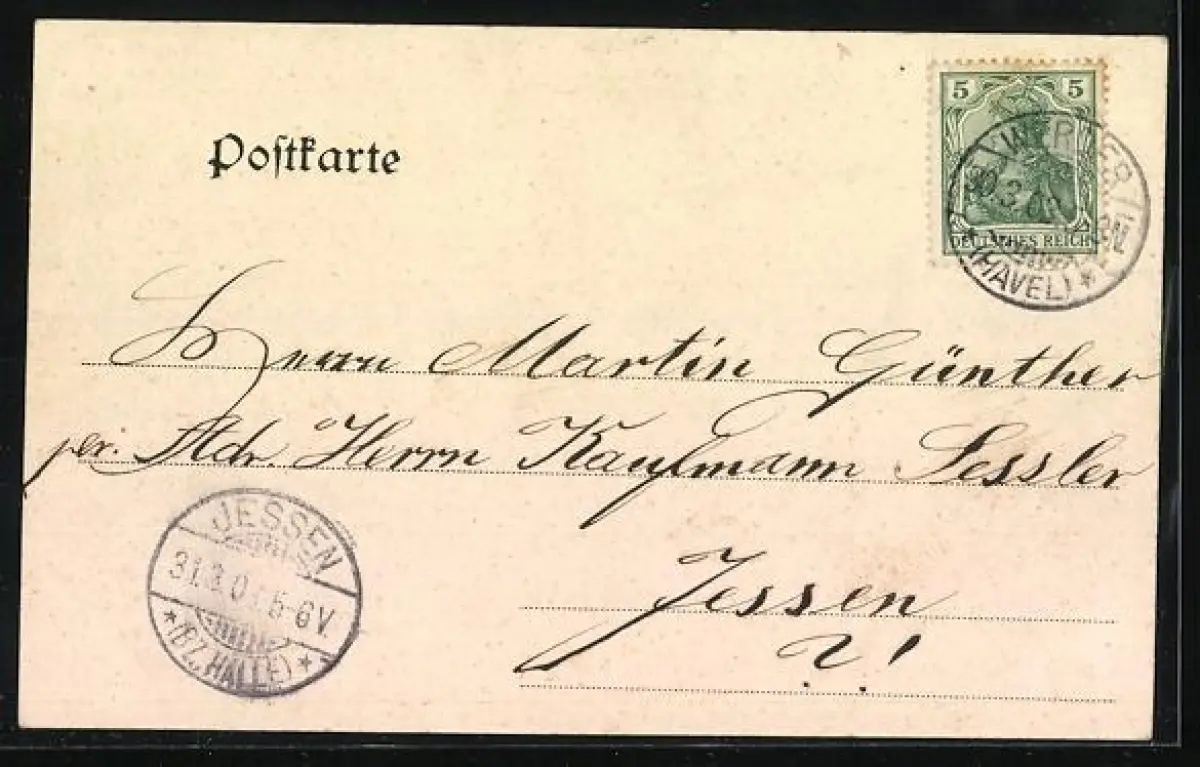 Postkarte
5 5
DEUTSCHES REICH
30.3.0
* (HAVEL) *
Herrn Martin Günther
per. Adr. Herrn Kaufmann Sessler
Jessen
JESSEN
31.3.0 5-6V.
* (BZ. HALLE) *